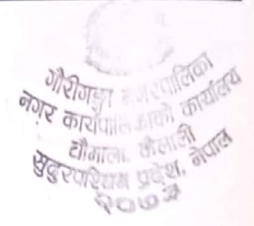 गौरीगङ्गा नगरपालिका
नगर कार्यपालिकाको कार्यालय
चौमाला, कैलाली
सुदुरपश्चिम प्रदेश, नेपाल
२०७३